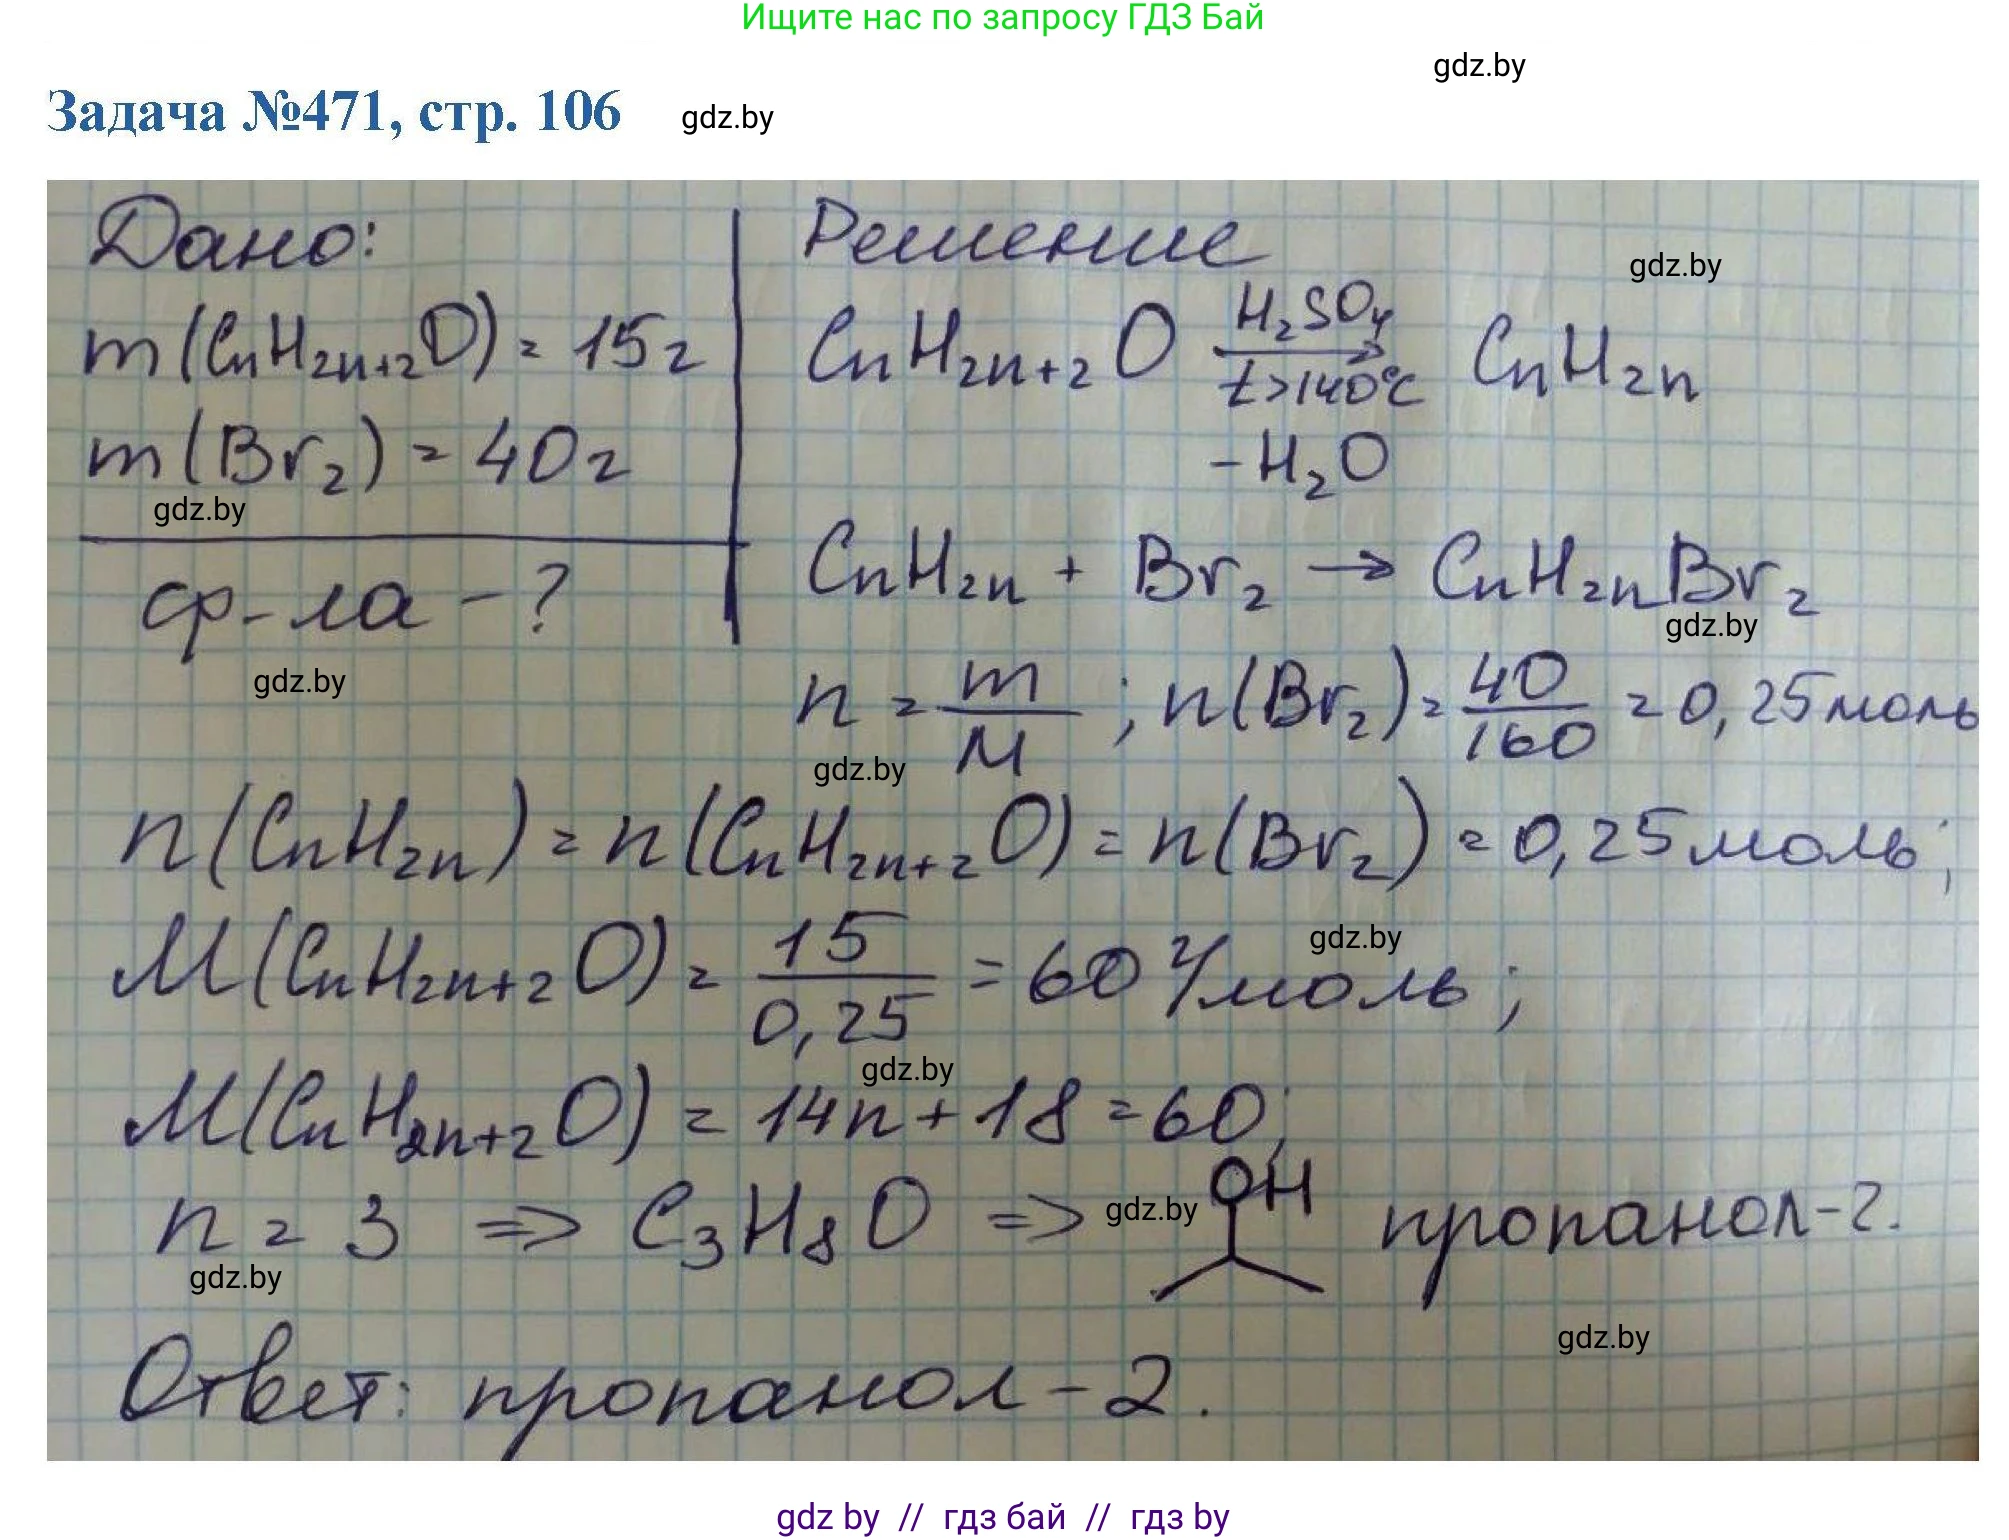 Ищите нас по запросу ГДЗ Бай
gdz.by
Задача №471, стр. 106 gdz.by
Дано:
m(CnH2n+2O) = 15г
m(Br2) = 40г
gdz.by
ф-ла - ?
gdz.by
Решение
gdz.by
CnH2n+2O H2SO4 t>140°C CnH2n
-H2O
CnH2n + Br2 → CnH2nBr2
gdz.by
n = m/M ; n(Br2) = 40/160 = 0,25моль
gdz.by
n(CnH2n) = n(CnH2n+2O) = n(Br2) = 0,25моль;
M(CnH2n+2O) = 15/0,25 = 60 г/моль;
gdz.by
gdz.by
M(CnH2n+2O) = 14n + 18 = 60;
n = 3 => C3H8O => OH пропанол-2.
gdz.by
gdz.by
gdz.by
Ответ: пропанол-2.
gdz by // гдз бай // гдз by